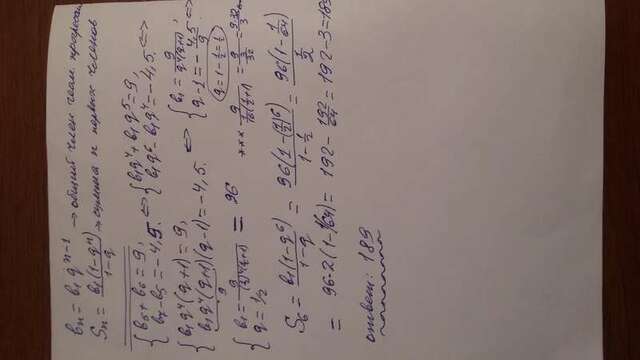 bₙ = b₁qⁿ⁻¹ → общий член геом. прогрессии
Sₙ = b₁(1-qⁿ)/(1-q) → сумма n первых членов
{ b₅+b₆=9, b₇-b₅=-4,5. ⇔ { b₁q⁴+b₁q⁵=9, b₁q⁶-b₁q⁴=-4,5 ⇔
{ b₁q⁴(q+1)=9, b₁q⁴(q+1)(q-1)=-4,5. ⇔ { b₁=9/(q⁴(q+1)), q-1=-4,5/9 ⇔
9
q=1-1/2=1/2
{ b₁=9/((1/2)⁴(q+1)) = 96 q=1/2
S₆ = b₁(1-q⁶)/(1-q) = 96(1-(1/2)⁶)/(1-1/2) = 96(1-1/64)/(1/2)
= 96·2(1-1/64) = 192 - 192/64 = 192-3=189
ответ: 189